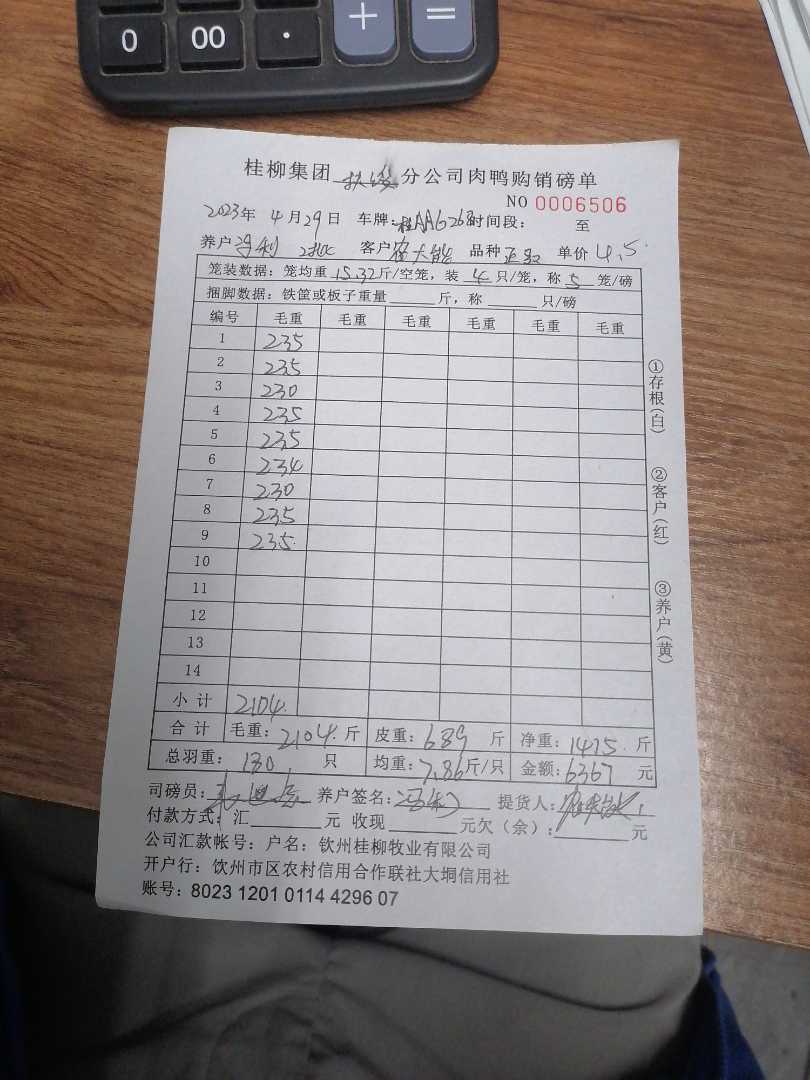 0 00 · + =
桂柳集团 扶绥 分公司肉鸭购销磅单
NO 0006506
2023年 4月29日 车牌:桂AAG268时间段: 至
养户 冯利 客户 大能 品种 正 单价 4.5
笼装数据:笼均重15.32斤/空笼,装 4 只/笼,称 5 笼/磅
捆脚数据:铁筐或板子重量 斤,称 只/磅
编号 毛重 毛重 毛重 毛重 毛重 毛重
1 235
2 235
3 230
4 235
5 235
6 234
7 230
8 235
9 235
10
11
12
13
14
小计 2104
合计 毛重:2104 斤 皮重:689 斤 净重:1415 斤
总羽重:180 只 均重:7.86斤/只 金额:6367 元
司磅员: 养户签名:冯利 提货人:
付款方式:汇 元 收现 元欠(余): 元
公司汇款帐号:户名:钦州桂柳牧业有限公司
开户行:饮州市区农村信用合作联社大垌信用社
账号:8023 1201 0114 4296 07
①存根(白)
②客户(红)
③养户(黄)